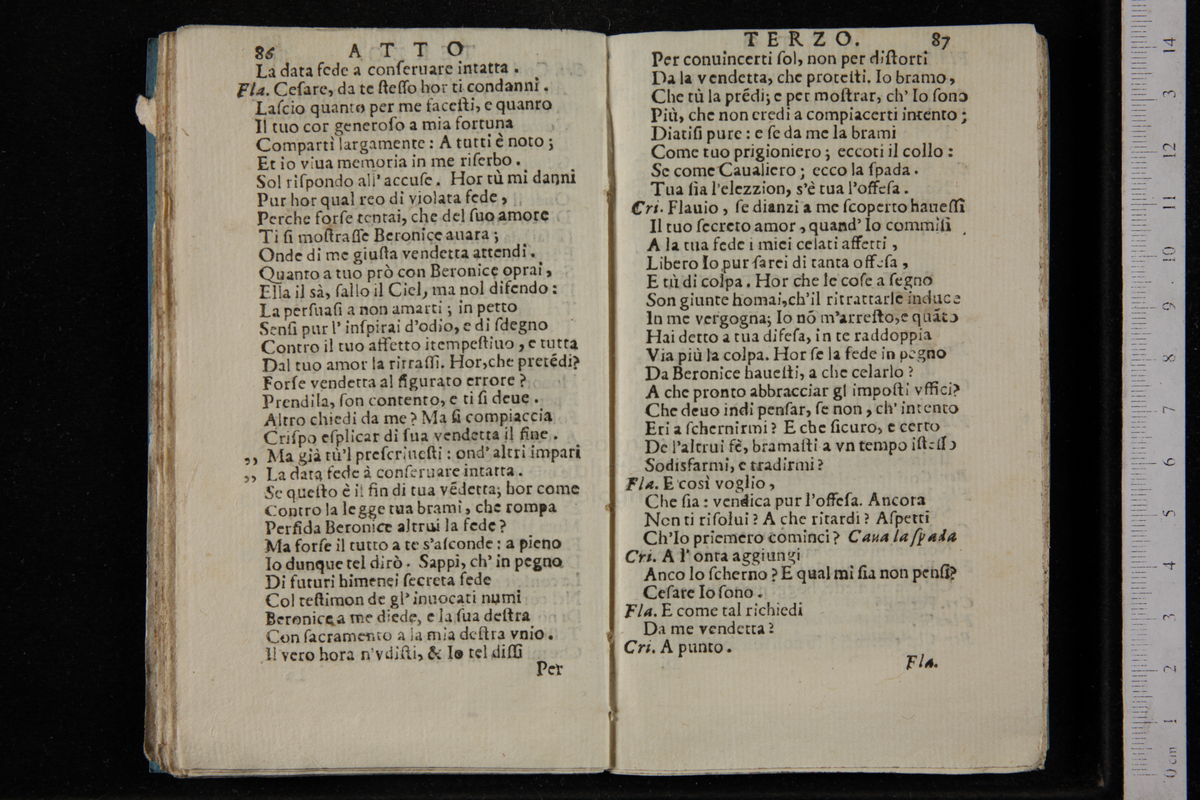 86 ATTO
La data fede a conſeruare intatta.
Fla. Ceſare, da te ſteſſo hor ti condanni.
Laſcio quanto per me faceſti, e quanro
Il tuo cor generoſo a mia fortuna
Compartì largamente: A tutti è noto;
Et io viua memoria in me riſerbo.
Sol riſpondo all'accuſe. Hor tù mi danni
Pur hor qual reo di violata fede,
Perche forſe tentai, che del ſuo amore
Ti ſi moſtraſſe Beronice auara;
Onde di me giuſta vendetta attendi.
Quanto a tuo prò con Beronice oprai,
Ella il sà, ſallo il Ciel, ma nol difendo:
La perſuaſi a non amarti; in petto
Senſi pur l'inſpirai d'odio, e di ſdegno
Contro il tuo affetto itempeſtiuo, e tutta
Dal tuo amor la ritraſſi. Hor, che pretẽdi?
Forſe vendetta al figurato errore?
Prendila, ſon contento, e ti ſi deue.
Altro chiedi da me? Ma ſi compiaccia
Criſpo eſplicar di ſua vendetta il fine.
„ Ma già tù'l preſcriueſti: ond'altri impari
„ La data fede à conſeruare intatta.
Se queſto è il fin di tua vẽdetta; hor come
Contro la legge tua brami, che rompa
Perfida Beronice altrui la fede?
Ma forſe il tutto a te s'aſconde: a pieno
Io dunque tel dirò. Sappi, ch'in pegno
Di futuri himenei ſecreta fede
Col teſtimon de gl'inuocati numi
Beronice a me diede, e la ſua deſtra
Con ſacramento a la mia deſtra vnio.
Il vero hora n'vdiſti, & Io tel diſſi
Per
TERZO. 87
Per conuincerti ſol, non per diſtorti
Da la vendetta, che proteſti. Io bramo,
Che tù la prẽdi; e per moſtrar, ch'Io ſono
Più, che non credi a compiacerti intento;
Diatiſi pure: e ſe da me la brami
Come tuo prigioniero; eccoti il collo:
Se come Caualiero; ecco la ſpada.
Tua ſia l'elezzion, s'è tua l'offeſa.
Cri. Flauio, ſe dianzi a me ſcoperto haueſſi
Il tuo ſecreto amor, quand'Io commiſi
A la tua fede i miei celati affetti,
Libero Io pur ſarei di tanta offeſa,
E tù di colpa. Hor che le coſe a ſegno
Son giunte homai, ch'il ritrattarle induce
In me vergogna; Io nõ m'arreſto, e quãto
Hai detto a tua difeſa, in te raddoppia
Via più la colpa. Hor ſe la fede in pegno
Da Beronice haueſti, a che celarlo?
A che pronto abbracciar gl'impoſti vffici?
Che deuo indi penſar, ſe non, ch'intento
Eri a ſchernirmi? E che ſicuro, e certo
De l'altrui fè, bramaſti a vn tempo iſteſſo
Sodisfarmi, e tradirmi?
Fla. E così voglio,
Che ſia: vendica pur l'offeſa. Ancora
Non ti riſolui? A che ritardi? Aſpetti
Ch'Io priemero cominci? Caua la ſpada
Cri. A l'onta aggiungi
Anco lo ſcherno? E qual mi ſia non penſi?
Ceſare Io ſono.
Fla. E come tal richiedi
Da me vendetta?
Cri. A punto.
Fla.
0 cm 1 2 3 4 5 6 7 8 9 10 11 12 3 14